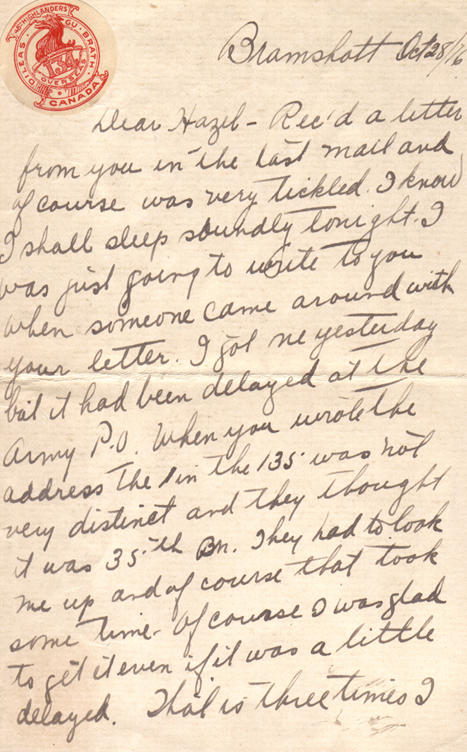 48TH HIGHLANDERS
DILEAS GU BRATH
134
OVERSEAS
CANADA
Bramshott Oct 28/16
Dear Hazel - Rec'd a letter
from you in the last mail and
of course was very tickled. I know
I shall sleep soundly tonight. I
was just going to write to you
when someone came around with
your letter. I got ne yesterday
but it had been delayed at the
Army P.O. When you wrote the
address the 1 in the 135 was not
very distinct and they thought
it was 35th Bn. They had to look
me up and of course that took
some time - Of course I was glad
to get it even if it was a little
delayed. That is three times I